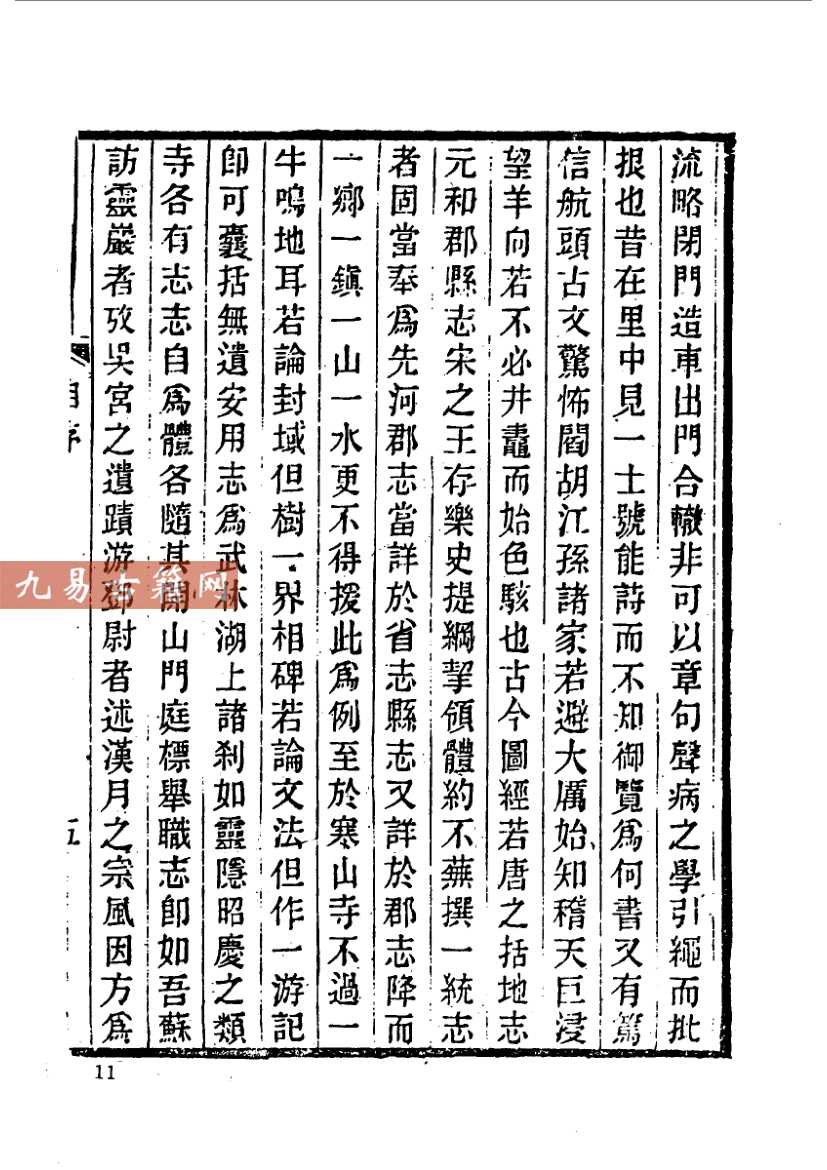 流略閉門造車出門合轍非可以章句聲病之學引繩而批
根也昔在里中見一士號能詩而不知御覽爲何書又有篤
信航頭古文驚怖閻胡江孫諸家若避大厲始知稽天巨浸
望羊向若不必井鼃而始色駭也古今圖經若唐之括地志
元和郡縣志宋之王存樂史提綱挈領體約不蕪撰一統志
者固當奉爲先河郡志當詳於省志縣志又詳於郡志降而
一鄉一鎭一山一水更不得援此爲例至於寒山寺不過一
牛鳴地耳若論封域但樹一界相碑若論文法但作一游記
卽可囊括無遺安用志爲武林湖上諸刹如靈隱昭慶之類
寺各有志志自爲體各隨其開山門庭標舉職志卽如吾蘇
訪靈巖者攷吳宮之遺蹟游鄧尉者述漢月之宗風因方爲
自序
五
11
九易古籍网